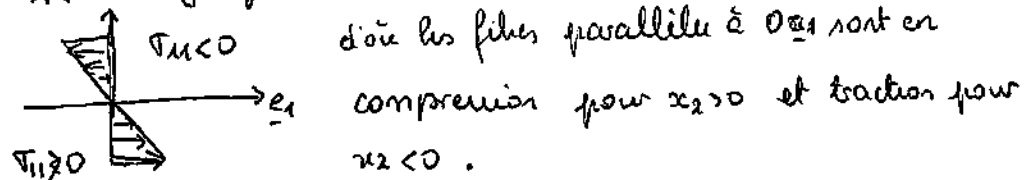 σ₁₁<0
d'où les fibres parallèles à 0e₁ sont en
e₁ compression pour x₂>0 et traction pour
σ₁₁≥0 x₂<0 .